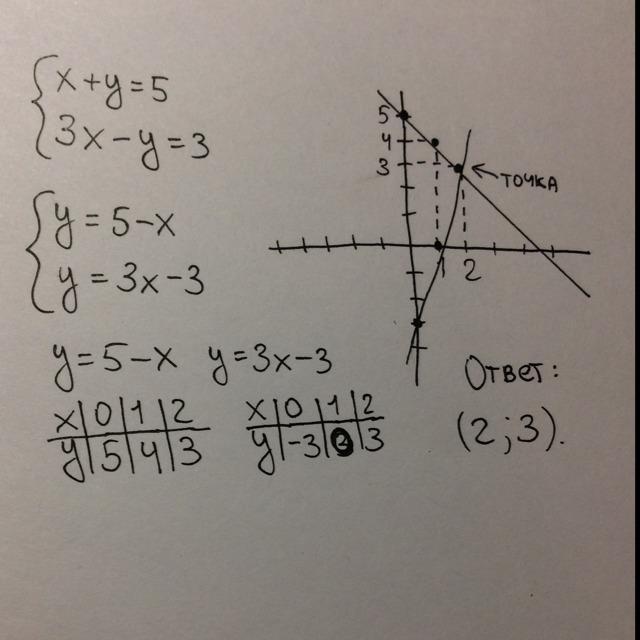 x+y=5
3x-y=3
y=5-x
y=3x-3
y=5-x y=3x-3
x|0|1|2
y|5|4|3
x|0|1|2
y|-3|0|3
5
4
3
1 2
← точка
Ответ:
(2;3).